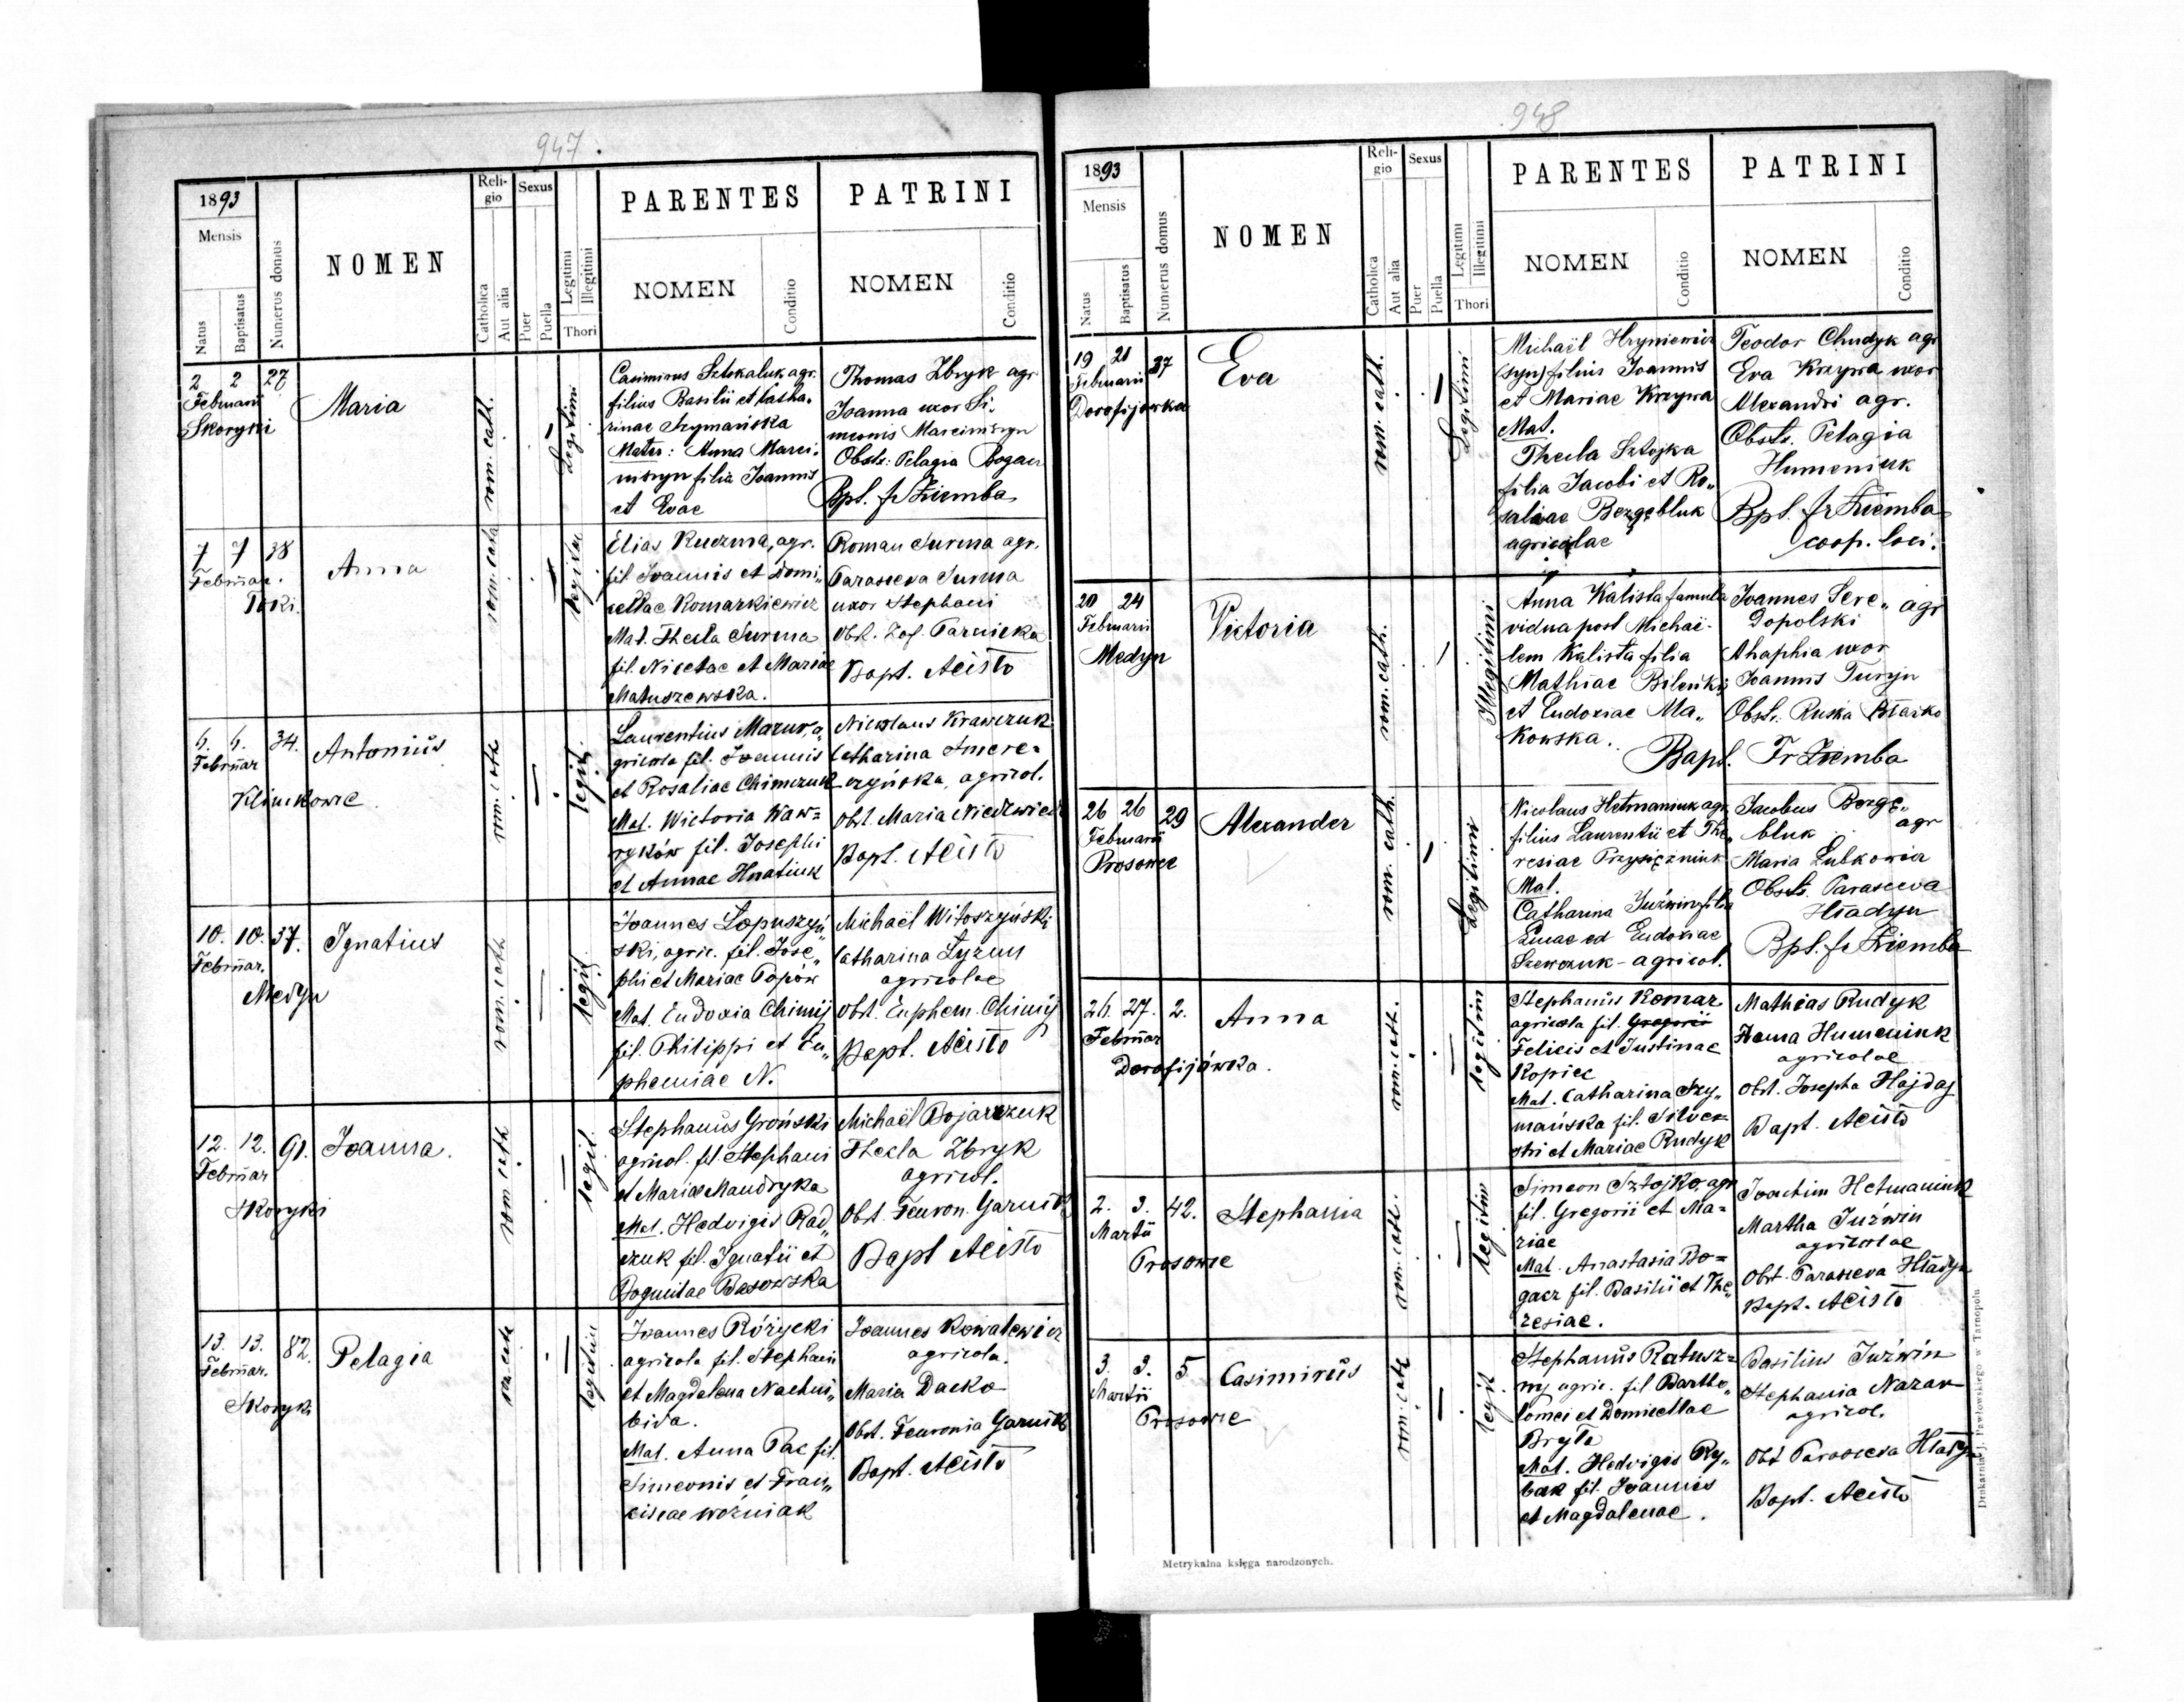 947.
1893
Mensis
Natus
Baptisatus
Numerus domus
NOMEN
Religio
Catholica
Aut alia
Sexus
Puer
Puella
Legitimi
Illegitimi
Thori
PARENTES
NOMEN
Conditio
PATRINI
NOMEN
Conditio
2 2 27
Februarii
Skoryki
Maria
rom. cath.
Legitimi
Casimirus Sztokaluk agr.
filius Basilii et Catha-
rinae Szymańska
Mater: Anna Marci-
niszyn filia Joannis
et Evae
Thomas Zbryk agr
Joanna uxor Si-
meonis Marciniszyn
Obstr: Pelagia Bogacz
Bpt. fr Ziemba
7 7 38
Februar.
Toki.
Anna
rom. cath
legitim
Elias Kuczma, agr.
fil. Joannis et Domi„
cellae Komarkiewicz
Mat. Thecla Surma
fil. Nicetae et Mariae
Matuszewska.
Roman Surma agr.
Parasceva Surma
uxor Stephani
Obst. Zof. Parnicka
Bapt. Acisto
6. 6. 34.
Februar
Klimkowce
Antonius
rom. cath
legit.
Laurentius Mazur, a„
gricola fil. Joannis
et Rosaliae Chimczuk
Mat. Wictoria Waw=
ryków fil. Josephi
et Annae Hnatiuk
Nicolaus Krawczuk
Catharina Smere=
czyńska, agricol.
Obst. Maria Niedzwiedz
Bapt. Acisto
10. 10. 37.
Februar.
Medyn
Ignatius
rom. cath
legit
Joannes Łopuszyń„
ski, agric. fil. Jose„
phi et Mariae Popów
Mat. Eudoxia Chimij
fil. Philippi et Eu„
phemiae N.
Michaël Witoszyński
Catharina Łyzun
agricolae
Obst. Euphem. Chimij
Bapt. Acisto
12. 12. 91.
Februar
Skoryki
Joanna.
rom cath
legit.
Stephanus Groński
agricol. fil. Stephani
et Mariae Mandryka
Mat. Hedvigis Rad„
czuk fil. Ignatii et
Bogumilae Basowska
Michaël Bojarczuk
Thecla Zbryk
agricol.
Obst. Feuron. Garnik
Bapt Acisto
13. 13. 82.
Februar.
Skoryki
Pelagia
rom. cath
legitim
Joannes Różycki
agricola fil. Stephani
et Magdalena Nachni„
bida.
Mat. Anna Pac fil.
Simeonis et Fran„
ciscae Woźniak
Joannes Kowalewicz
agricola.
Maria Dacko
Obst. Feuronia Garnik
Bapt. Acisto
948
1893
Mensis
Natus
Baptisatus
Numerus domus
NOMEN
Religio
Catholica
Aut alia
Sexus
Puer
Puella
Legitimi
Illegitimi
Thori
PARENTES
NOMEN
Conditio
PATRINI
NOMEN
Conditio
19 21 37
Februarii
Dorofijówka
Eva
rom. cath.
Legitimi
Michaël Hryniewicz
(syn) filius Joannis
et Mariae Krzywa
Mat.
Thecla Sztojka
filia Jacobi et Ro„
saliae Bezgębluk
agricolae
Teodor Chudyk agr
Eva Krzywa uxor
Alexandri agr.
Obstr. Pelagia
Humeniuk
Bpt. fr Ziemba
coop. loci.
20 24
Februarii
Medyn
Victoria
rom. cath.
Illegitimi
Anna Kalista famula
vidua post Michaë-
lem Kalista filia
Mathiae Bileńkij
et Eudoxiae Ma„
kowska.
Joannes Sere„ agr
dopolski
Ahaphia uxor
Joannis Turyn
Obst.
Bapt. Fr Ziemba
26 26 29
Februarii
Prosowce
Alexander
rom. cath.
Legitimi
Nicolaus Hetmaniuk agr.
filius Laurentii et The„
resiae Przysiężniuk
Mat.
Catharina Juźwin filia
Lucae ed Eudoxiae
Szewczuk - agricol.
Jacobus Bezgę„
bluk agr
Maria Lubkowicz
Obstr. Parasceva
Hładyn
Bpt. fr Ziemba
26. 27. 2.
Februar
Dorofijówka.
Anna
rom. cath.
legitim
Stephanus Komar
agricola fil. Gregorii
Felicis et Justinae
Kopiec
Mat. Catharina Szy„
mańska fil. Silves„
tri et Mariae Rudyk
Mathias Rudyk
Anna Humeniuk
agricolae
Obst. Josepha Hajdaj
Bapt. Acisto
2. 3. 42.
Martii
Prosowce
Stephania
rom. cath.
legitim
Simeon Sztojko, agr
fil. Gregorii et Ma=
riae
Mat. Anastasia Bo=
gacz fil. Basilii et The„
resiae.
Joachim Hetmaniuk
Martha Juźwin
agricolae
Obst. Parasceva Hładyn
Bapt. Acisto
3. 3. 5
Martii
Prosowce
Casimirus
rom. cath
legit
Stephanus Ratusz=
ny agric. fil Bartho„
lomei et Domicellae
Bryła
Mat. Hedvigis Ry„
bak fil. Joannis
et Magdalenae.
Basilius Juźwin
Stephania Nazar
agricol.
Obst Parasceva Hładyn
Bapt. Acisto
Metrykalna księga narodzonych.
Drukarnia J. Pawłowskiego w Tarnopolu